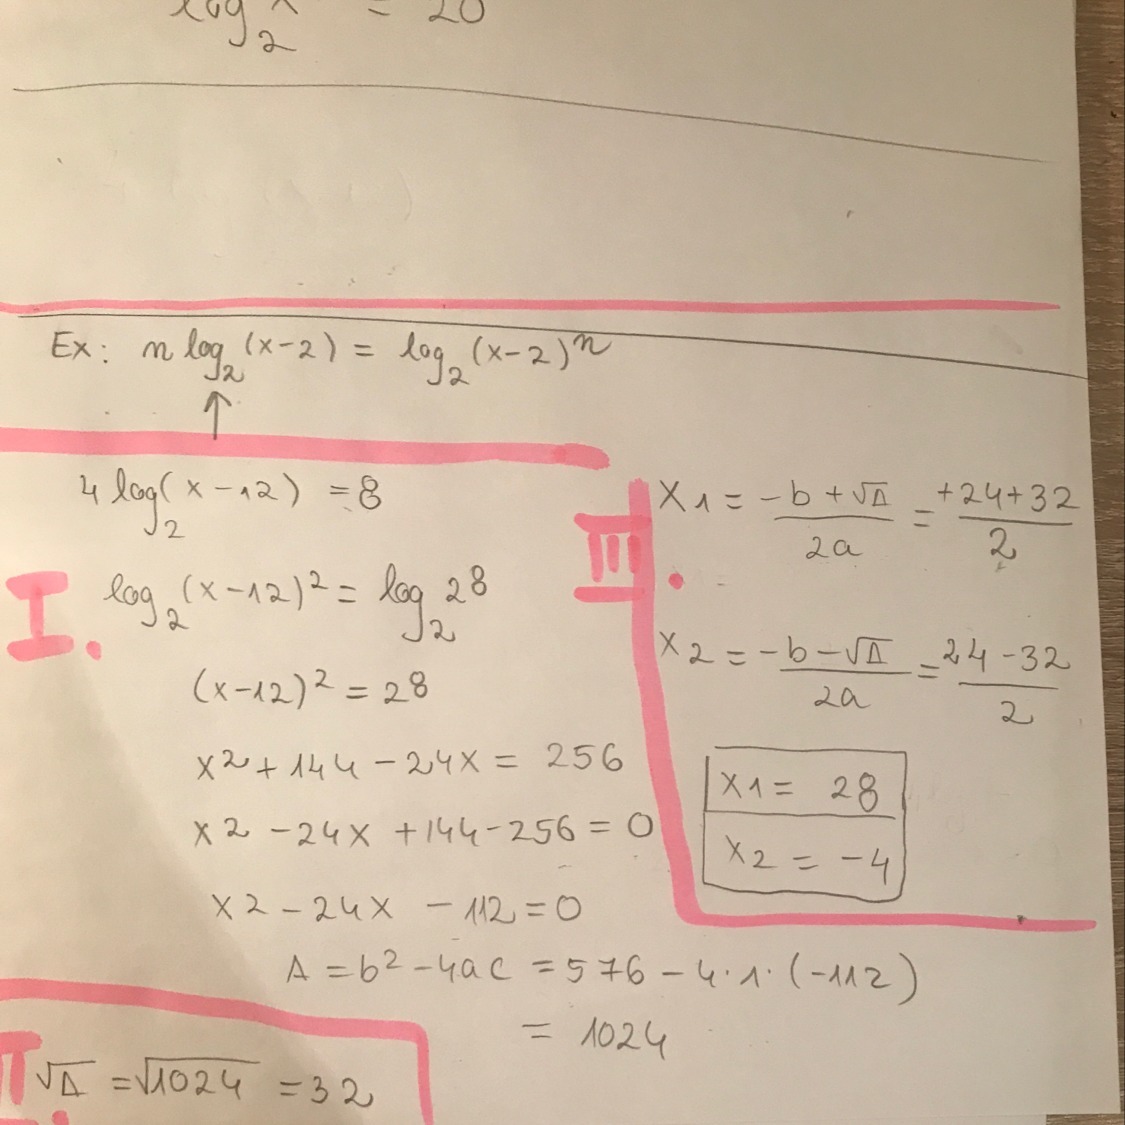 log₂ x = 20
Ex: n log₂(x-2) = log₂(x-2)ⁿ
↑
4 log₂(x-12) = 8
I. log₂(x-12)² = log₂ 2⁸
(x-12)² = 2⁸
x² + 144 - 24x = 256
x² - 24x + 144 - 256 = 0
x² - 24x - 112 = 0
Δ = b² - 4ac = 576 - 4·1·(-112)
= 1024
II. √Δ = √1024 = 32
III. x1 = (-b + √Δ)/2a = (+24+32)/2
x2 = (-b - √Δ)/2a = (24-32)/2
x1 = 28
x2 = -4